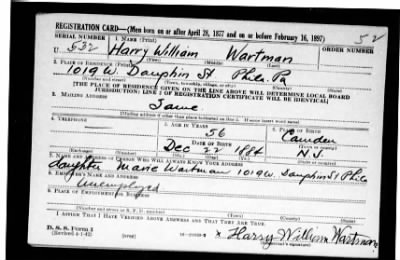 REGISTRATION CARD—(Men born on or after April 28, 1877 and on or before February 16, 1897)
SERIAL NUMBER 1. NAME (Print) ORDER NUMBER
U 532 Harry William Wartman 52
(First) (Middle) (Last)
2. PLACE OF RESIDENCE (Print)
1019 W. Dauphin St Phila. Pa
(Number and street) (Town, township, village, or city) (County) (State)
[THE PLACE OF RESIDENCE GIVEN ON THE LINE ABOVE WILL DETERMINE LOCAL BOARD
JURISDICTION; LINE 2 OF REGISTRATION CERTIFICATE WILL BE IDENTICAL]
3. MAILING ADDRESS
Same
[Mailing address if other than place indicated on line 2. If same insert word same]
4. TELEPHONE 5. AGE IN YEARS 6. PLACE OF BIRTH
56 Camden
DATE OF BIRTH (Town or county)
Dec 22 1884 N.J.
(Exchange) (Number) (Mo.) (Day) (Yr.) (State or country)
7. NAME AND ADDRESS OF PERSON WHO WILL ALWAYS KNOW YOUR ADDRESS
daughter Marie Wartman 1019 W. Dauphin St Phila
8. EMPLOYER'S NAME AND ADDRESS
Unemployed
9. PLACE OF EMPLOYMENT OR BUSINESS
(Number and street or R. F. D. number) (Town) (County) (State)
I AFFIRM THAT I HAVE VERIFIED ABOVE ANSWERS AND THAT THEY ARE TRUE.
D. S. S. Form 1
(Revised 4-1-42) (over) x Harry William Wartman
(Registrant's signature)